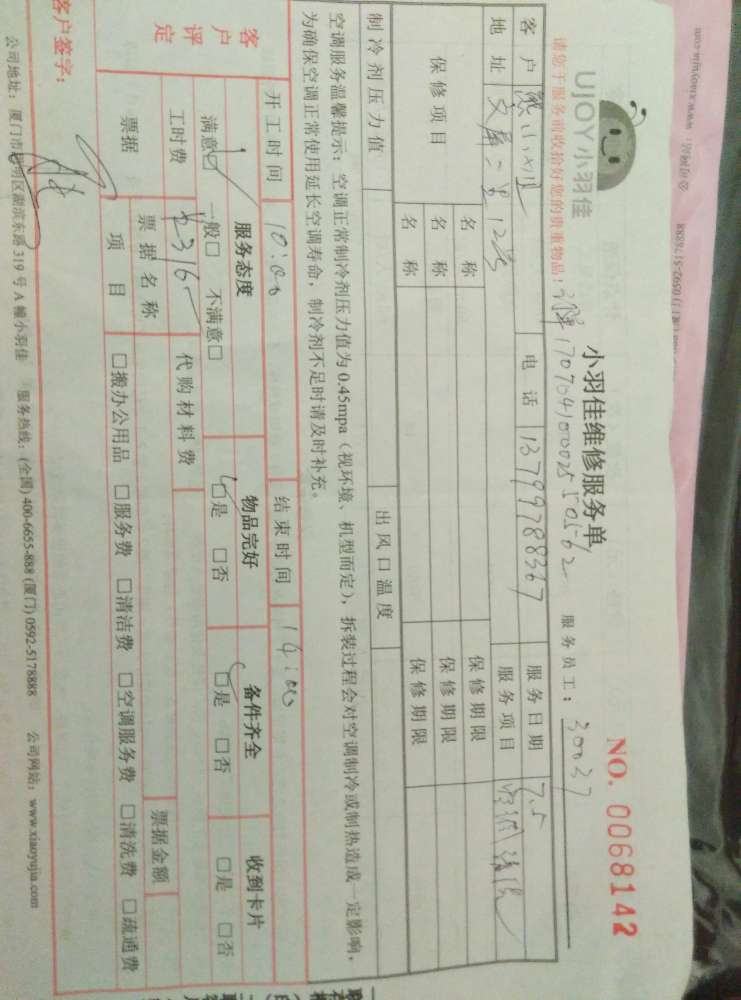 UJOY小羽佳
小羽佳维修服务单
NO. 0068142
请您于服务前收拾好您的贵重物品!
服务员工: 30037
客户 电话 13799788367 服务日期 7.5
地址 服务项目
保修项目 名称 保修期限
名称 保修期限
名称 保修期限
制冷剂压力值 出风口温度
空调服务温馨提示:空调正常制冷剂压力值为0.45mpa(视环境、机型而定),拆装过程会对空调制冷或制热造成一定影响,
为确保空调正常使用延长空调寿命,制冷剂不足时请及时补充。
开工时间 10:00 结束时间 14:00
客户评定 服务态度 物品完好 备件齐全 收到卡片
满意☑ 一般□ 不满意□ □是 □否 □是 □否 □是 □否
工时费 代购材料费
票据 票据名称 票据金额
项目 □搬办公用品 □服务费 □清洁费 □空调服务费 □清洗费 □疏通费
客户签字:
公司地址:厦门市思明区湖滨东路319号A幢小羽佳 服务热线:(全国)400-6655-888(厦门)0592-5178888 公司网站:www.xiaoyujia.com